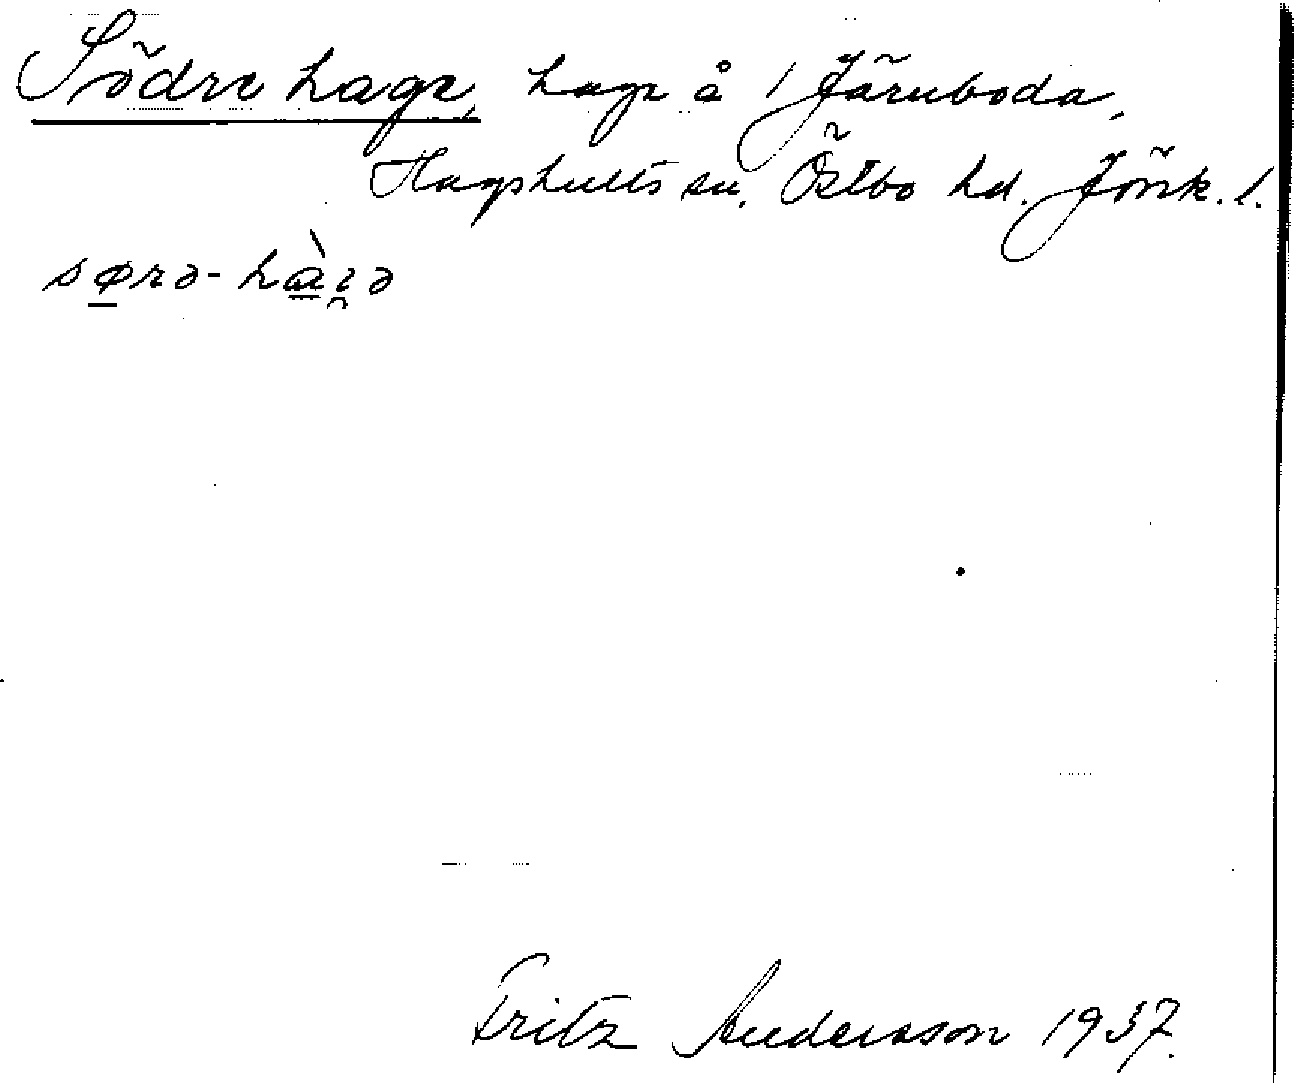 Södre hage, hage å 1 Järnboda,
Hagshults sn. Östbo hd. Jönk. l.
sørə-hàɪ̯ə
Fritz Andersson 1937.